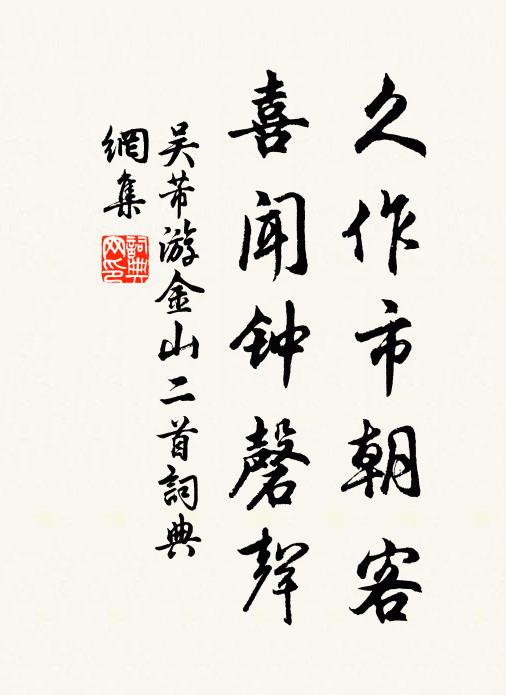 久作市朝客
喜闻钟磬聲
吴芾游金山二首詞典
網集
詞典
网印